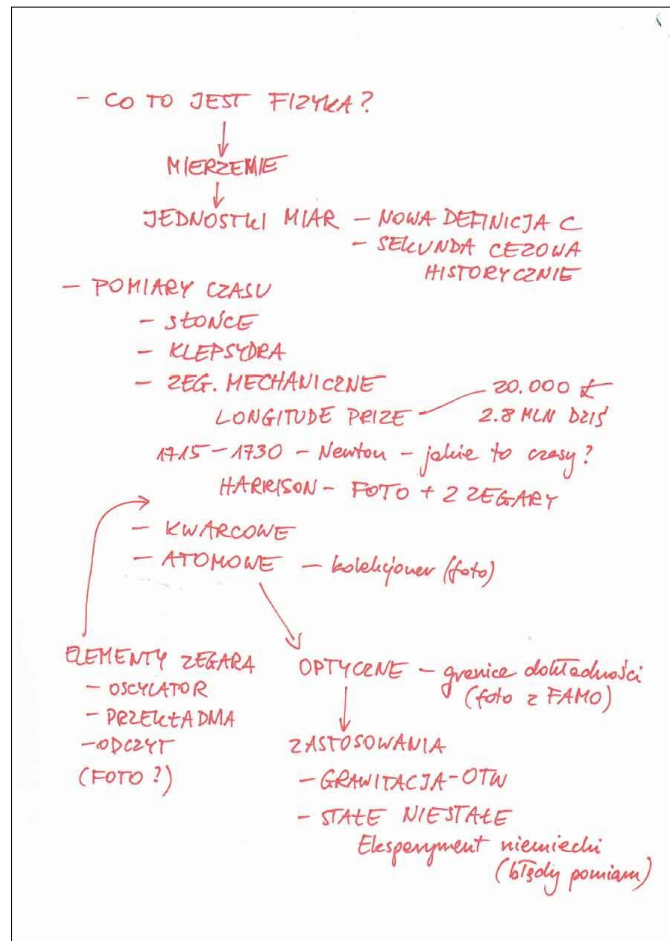 - CO TO JEST FIZYKA?
MIERZENIE
JEDNOSTKI MIAR - NOWA DEFINICJA C
- SEKUNDA CEZOWA
HISTORYCZNIE
- POMIARY CZASU
- SŁOŃCE
- KLEPSYDRA
- ZEG. MECHANICZNE
LONGITUDE PRIZE - 20.000 £
2.8 MLN DZIŚ
1715-1730 - Newton - jakie to czasy?
HARRISON - FOTO + 2 ZEGARY
- KWARCOWE
- ATOMOWE - kolekcjoner (foto)
ELEMENTY ZEGARA
- OSCYLATOR
- PRZEKŁADNIA
- ODCZYT
(FOTO?)
OPTYCZNE - granice dokładności
(foto z FAMO)
ZASTOSOWANIA
- GRAWITACJA-OTW
- STAŁE NIESTAŁE
Eksperyment niemiecki
(błędy pomiaru)